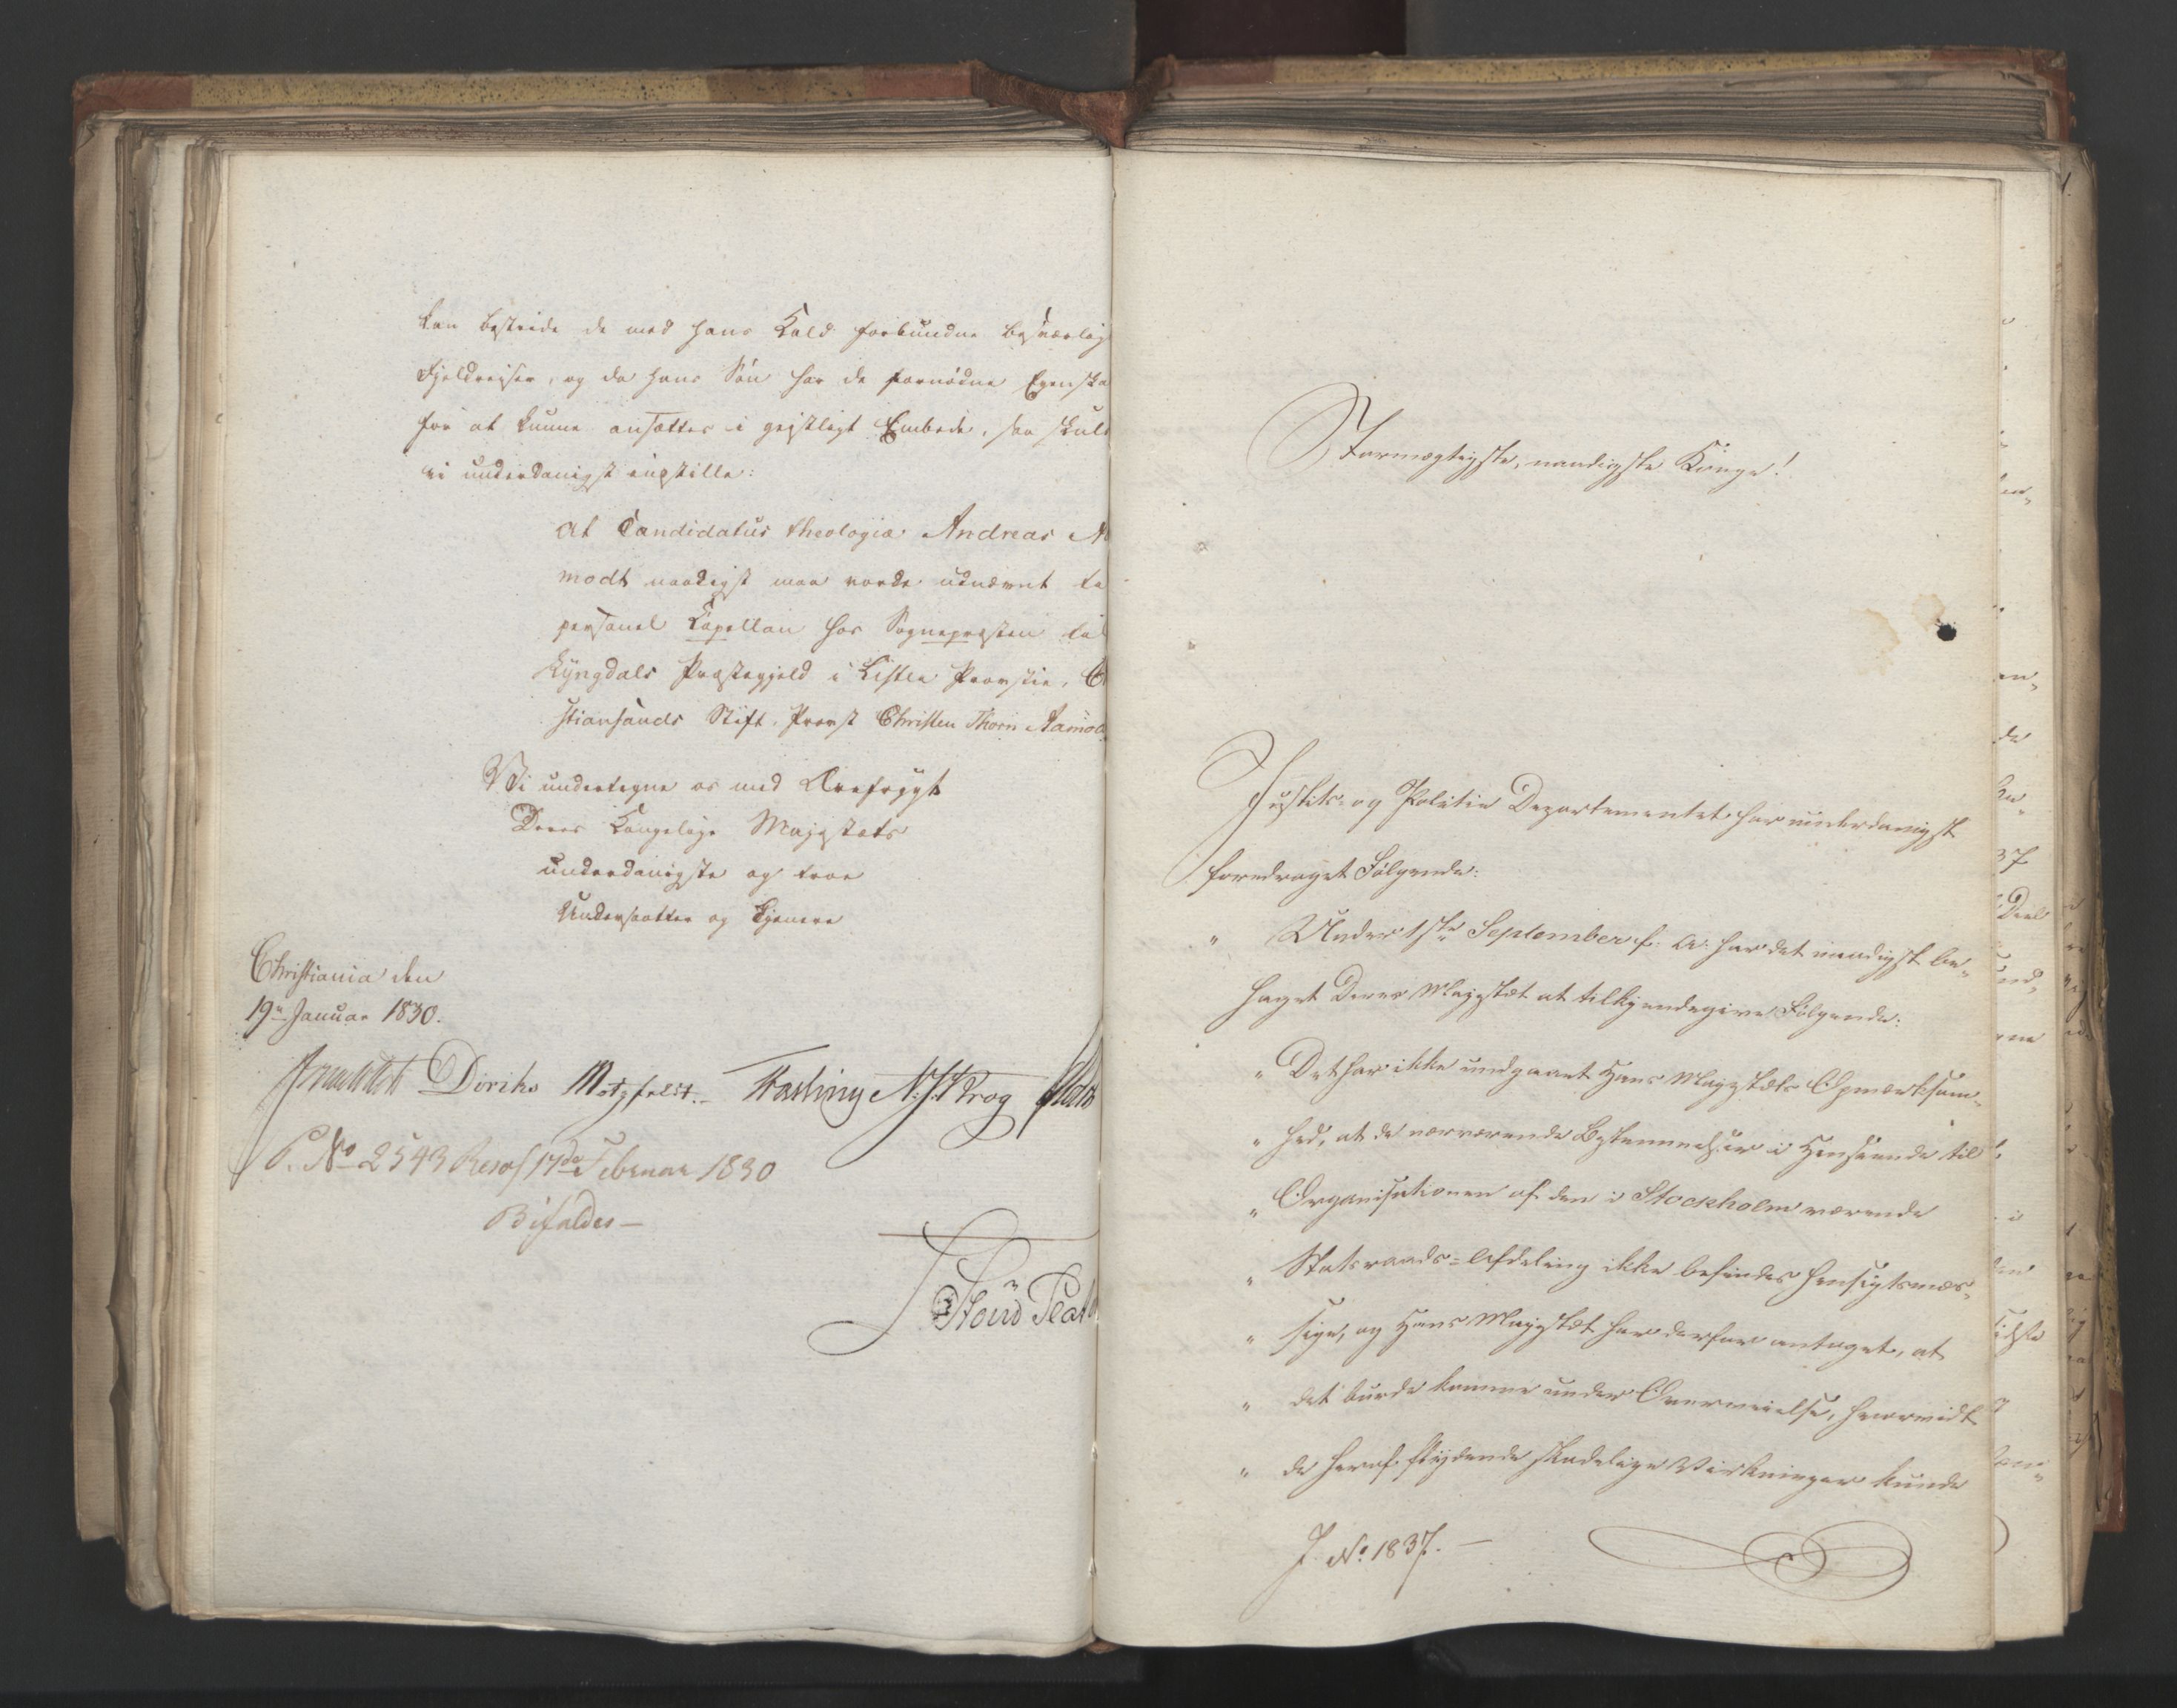 kan bestride de med hans Kald forbundne besværlig
Fjeldreiser, og da hans Søn har de fornødne Egenska
for at kunne ansættes i geistligt Embede, saa skul
vi underdanigst indstille:
At Candidatus theologiæ Andreas A
modt naadigst maa vorde udnævnt ti
personel Kapellan hos Sognepræsten til
Lyngdals Præstegjeld i Lister Provstie, C
stiansands Stift, Provst Christen Thorn Aamod
Vi undertegne os med Ærefrygt
Deres Kongelige Majestæts
underdanigste og troe
Undersaatter og Tjenere
Christiania den
19de Januar 1830.
Diriks Motzfeldt. Fasting N.J.Krog
P. No 2543 Resol 17de Februar 1830
Bifaldes —
Stormægtigste, naadigste Konge!
Justits- og Politie Departementet har underdanigst
foredraget Følgende:
" Under 1ste September f. A. har det naadigst be-
haget Deres Majestæt at tilkjendegive Følgende:
" Det har ikke undgaaet Hans Majestæts Opmærksom-
" hed, at de nærværende Bestemmelser i Henseende til
" Organisationen af den i Stockholm værende
" Statsraads-Afdeling ikke befindes hensigtsmæs-
" sige, og Hans Majestæt har derfor antaget, at
" det burde komme under Overveielse, hvorvidt
" de heraf flydende skadelige Virkninger kunde
J. No 1837. —